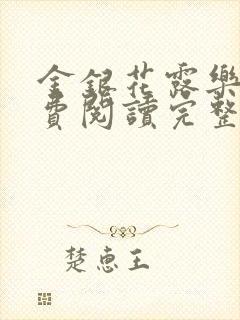 金銀花露樂
費閱讀完整
楚惠王